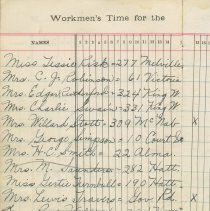 Workmen's Time for the
NAMES 1 2 3 4 5 6 7 8 9 10 11 12 1
Miss Tessie Fisk = 277 Melville
Mrs. C. J. Robinson = 61 Victoria
Mrs. Edgar Rutherford = 324 King W.
Mrs. Charlie Swain = 321 King W.
Mrs. Willard Stott = 309 McNab X
Mrs. George Simpson = 10 Court
Mrs. H. C. Smith = 22 Alma
Mrs. M. Saunders = 282 Hatt
Miss Gertie Turnbull = 190 Hatt
Mrs. Lewis Travers = Gov. Rd. X